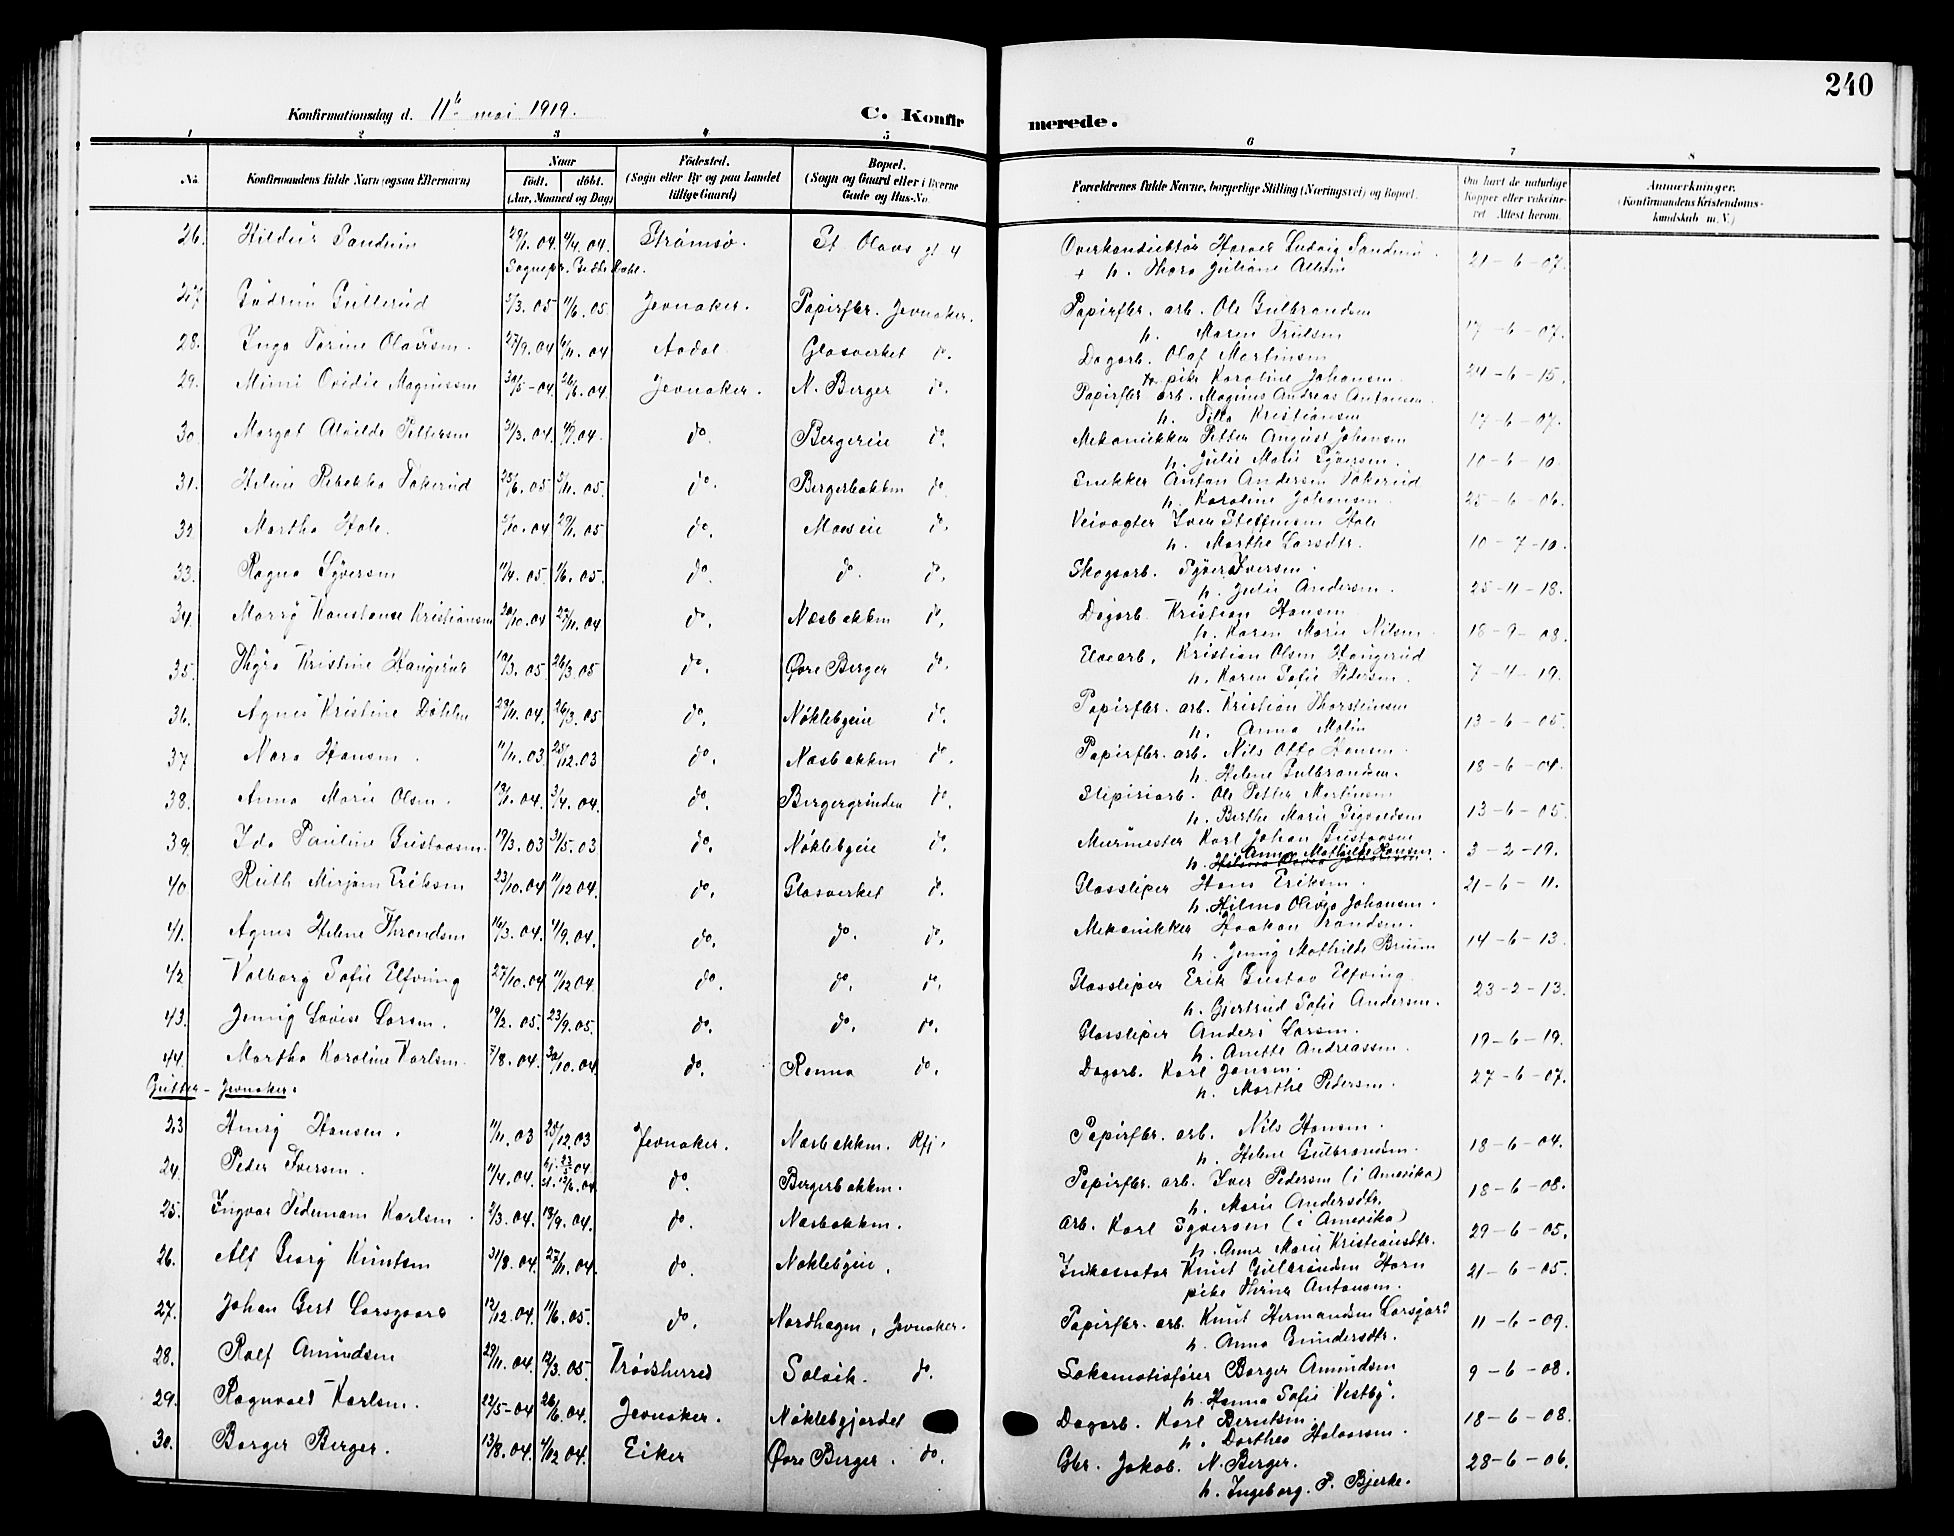 240
Konfirmationsdag d. 11te mai 1919.
C. Konfirmerede.
1 2 3 4 5 6 7 8
No
Konfirmandens fulde Navn (ogsaa Efternavn)
Naar
födt. döbt.
(Aar, Maaned og Dag)
Födested.
(Sogn eller By og paa Landet
tillige Gaard)
Bopæl.
(Sogn og Gaard eller i Byerne
Gade og Hus-No.
Forældrenes fulde Navne, borgerlige Stilling (Næringsvei) og Bopæl.
Om havt de naturlige
Kopper eller vakcine-
ret Attest herom.
Anmerkninger.
(Konfirmandens Kristendoms-
kundskab m. V.)
26. Hildur Sandum 29/1.04 4/4.04 Strømsø. St. Olavs gt 4 Overkonduktør Harald Ludvig Sandum. 21-6-07.
+ h. Thora Juliane
27 Gudrun Gulterud 5/3.05 11/6.05. Jevnaker. Papirfbr. Jevnaker. Papirfbr. arb. Ole Gulbrandsen
h. Maren Trulsen 17-6-07.
28. Inga Torine Olausen. 27/9.04 6/11.04 Aadal Glasverket do. Dagarb. Olaf Martinsen
pike Karoline Johansen. 24-6-15.
29. Mimi Ovidie Magnussen 30/5-04 26/6.04 Jevnaker. N. Berger do. Papirfbr arb. Magnus Andreas Antonsen.
h. Tilla Kristiansen 17-6-07.
30. Margot Alvilde Pettersen 31/3.04 4/7.04. do. Bergereie do. Mekanikker Petter August Johansen
h. Julie Marie Syversen. 10-6-10.
31. Helene Rebekka Tokerud 25/6.05 5/11.05. do. Bergerbakken do Snekker Anton Andersen Tokerud
h. Karoline Johansen. 25-6-06.
32 Martha Hole. 5/10.04 29/1.05 do. Moeseie do. Veivogter Iver Steffensen Hole
h. Marthe Larsdtr. 10-7-10.
33. Ragna Syversen 11/4.05 1/6.05. do. do. do. Skogsarb. Syver Iversen.
h. Julie Andersen. 25-11-18.
34. Marry Konstanse Kristiansen 20/10.04 27/11.04 do. Næsbakken do. Dagarb. Kristian Hansen
h. Karen Marie Nilsen. 18-9-08.
35. Thyra Kristine Haugerud 19/3.05 26/3.05 do. Øvre Berger do. Elvearb. Kristian Olsen Haugerud
h. Karen Sofie Pedersen. 7-4-19.
36. Agnes Kristine Døhlen 29/11.04. 26/3.05 do. Nøklebyeie do. Papirfbr. arb. Kristian Thorsteinsen
h. Anna Malin 13-6-05.
37 Nora Hansen. 11/11.03 25/12.03 do. Næsbakken do. Papirfbr. arb. Nils Otto Hansen.
h. Helene Gulbrandsen. 18-6-04.
38. Anna Marie Olsen. 19/1.04. 3/4.04. do. Bergergrinden do. Sliperiarb. Ole Petter Martinsen
h. Berthe Marie Sigvaldsen 13-6-05.
39. Ida Pauline Gustavsen. 19/3.03 31/5.03 do. Nøklebyeie do. Murmester Karl Johan Gustavsen
h. Anna Mathilde Hansen. 3-2-19.
40 Ruth Mirjam Eriksen 23/10.04 11/12 04. do. Glasverket do. Glassliper Hans Eriksen. 21-6-11.
h. Hilma Olivia Johansen.
41. Agnes Helene Throndsen 16/3.04. 4/9.04. do. do. do. Mekanikker Haakon Trondsen.
h. Jenny Mathilde Bruun 14-6-13
42 Valborg Sofie Elfving 27/10.04 11/12 04. do. do. do. Glassliper Erik Gustav Elfving.
h. Gjertrud Sofie Andersen. 23-2-13.
43. Jenny Lovise Larsen. 19/2.05. 23/9.05. do. do. do. Glassliper Anders Larsen.
h. Anette Andreassen. 19-6-19.
44. Martha Karoline Karlsen. 7/8.04. 30/10.04. do. Renna do. Dagarb. Karl Jonsen.
h. Marthe Pedersen. 27-6-07.
Gutter - Jevnaker.
23 Henry Hansen. 11/11.03 25/12.03 Jevnaker. Næsbakken. Rfj. Papirfbr. arb. Nils Hansen.
h. Helene Gulbrandsen. 18-6-04.
24. Peder Iversen. 11/4.04. hj. 23/5 04. st. 12/6.04. do. Bergerbakken. Papirfbr. arb. Iver Pedersen (i Amerika)
h. Marie Andersdtr. 18-6-08.
25. Ingvar Tidemann Karlsen. 2/3.04. 18/9.04. do. Næsbakken. Arb. Karl Syversen (i Amerika)
h. Anne Marie Kristiansdtr. 29-6-05.
26. Alf Georg Knutsen 31/8.04. 27/11.04. do. Nøklebyeie. Inkassator Knut Gulbrandsen Horn
pike Thrine Antonsen. 21-6-05.
27. Johan Gert Lorsgaard 12/12.04. 11/6.05. do. Nordhagen, Jevnaker. Papirfbr. arb. Knut Hermansen Lorsgard
h. Anna Gundersdtr. 11-6-09.
28. Rolf Amundsen 29/11.04. 12/3.05. Trødsherred Solvik. do. Lokomotivfører Borger Amundsen 9-6-08.
h. Hanna Sofie Vestby.
29. Ragnvald Karlsen. 22/5-04 26/6.04. Jevnaker. Nøklebyjordet Dagarb. Karl Berntsen. 18-6-08.
h. Dorthea Halvorsen.
30. Borger Berger. 13/8.04. 4/12 04. Eiker Øvre Berger. do. Gbr. Jakob. N. Berger. 28-6-06.
h. Ingeborg. P. Bjerke.